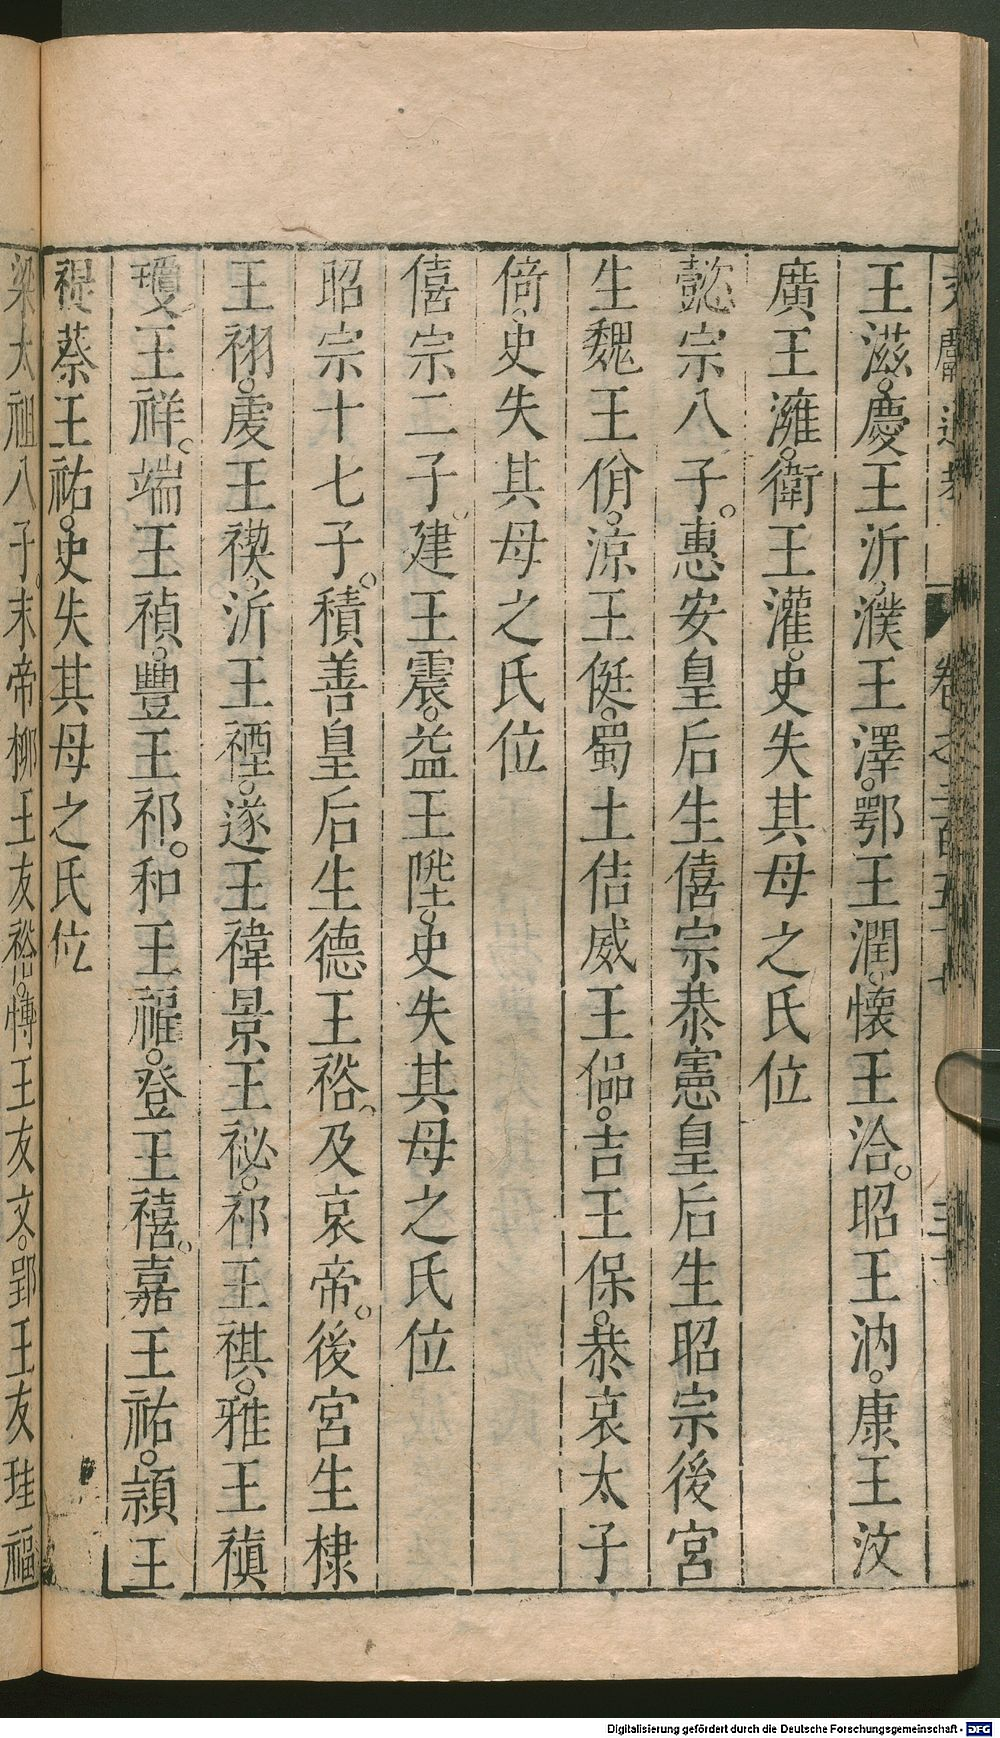 王滋慶王沂濮王澤鄂王潤懷王洽昭王汭康王汶
廣王澭衛王灌史失其母之氏位
懿宗八子惠安皇后生僖宗恭憲皇后生昭宗後宮
生魏王佾涼王侹蜀土佶威王偘吉王保恭哀太子
倚史失其母之氏位
僖宗二子建王震益王陞史失其母之氏位
昭宗十七子積善皇后生德王裕及哀帝後宮生棣
王祤虔王禊沂王禋遂王禕景王祕祁王祺雅王禛
瓊王祥端王禎豐王祁和王福登王禧嘉王祐頴王
禔蔡王祐史失其母之氏位
梁太祖八子末帝郴王友裕博王友文郢王友珪福
Digitalisierung gefördert durch die Deutsche Forschungsgemeinschaft - DFG